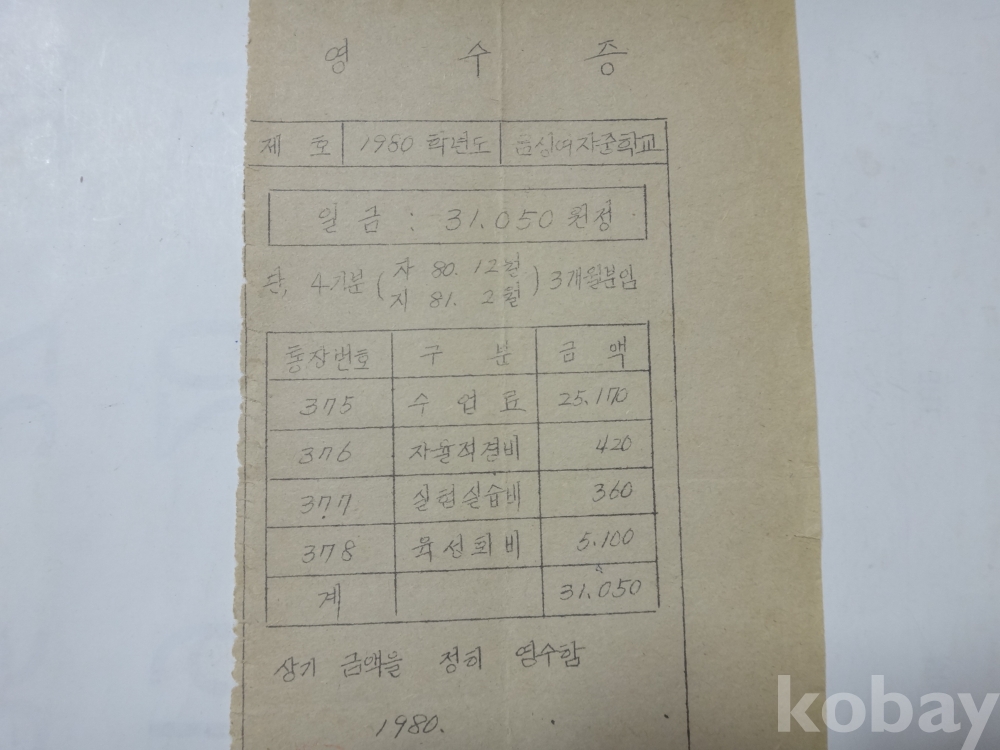 영 수 증
제 호 1980 학년도 음성여자중학교
일 금 : 31.050 원정
단, 4기분 ( 자 80. 12월
지 81. 2월 ) 3개월분임
통장번호 구 분 금 액
375 수 업 료 25.170
376 자율적경비 420
377 실험실습비 360
378 육성회비 5.100
계 31.050
상기 금액을 정히 영수함
1980. . .
kobay